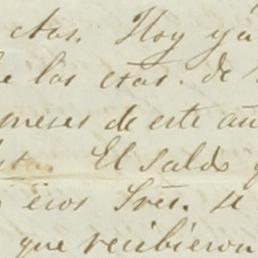 ctas. Hoy ya
los ctas. de
meses de este añ
El saldo
esos Sres. se
que recibieron